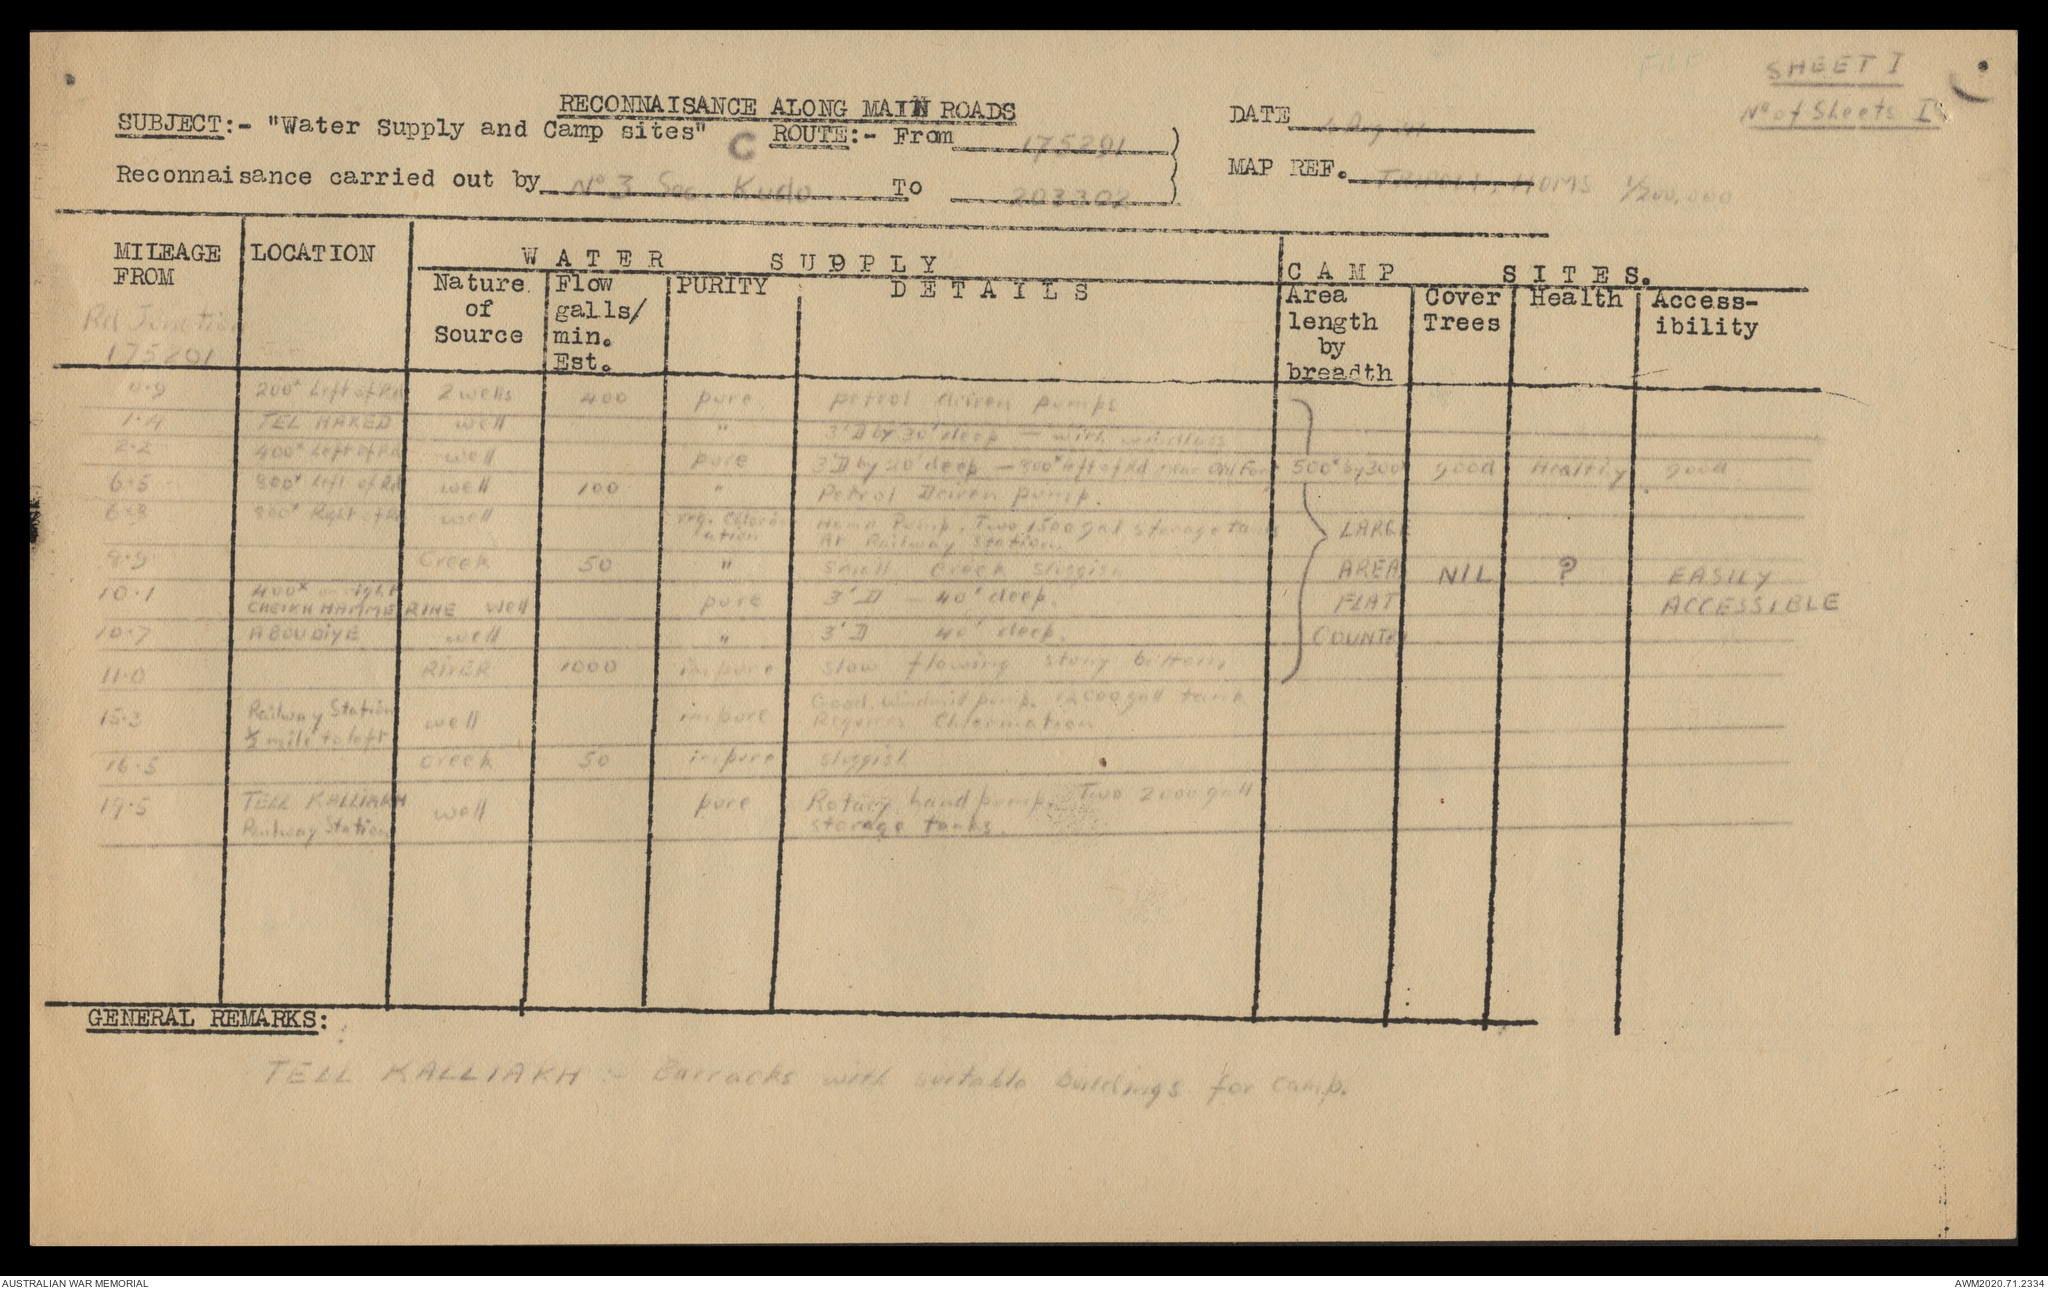 FILE
SHEET I
No of Sheets I
RECONNAISANCE ALONG MAIN ROADS
SUBJECT:- "Water Supply and Camp sites"
C
ROUTE:- From 175291
To 203302
DATE 4 Aug 41
Reconnaisance carried out by No 3 Sec Kudo
MAP REF. TRIPOLI, HOMS 1/200,000
MILEAGE FROM
Rd Junction
175291
LOCATION
WATER SUPPLY
Nature of Source
Flow galls/ min. Est.
PURITY
DETAILS
CAMP SITES.
Area length by breadth
Cover Trees
Health
Access-ibility
0.9 200x Left of Rd 2 wells 400 pure petrol driven pumps
1.4 TEL HAKED well " 3'D by 30' deep — with windlass
2.2 400x Left of Rd well pure 3'D by 20' deep — 800x left of Rd near Old Fort 500x by 300x good Healthy good
6.5 800x Left of Rd well 100 " Petrol Driven Pump.
6.8 800x Right of Rd well req. Chlorination Hand Pump. Two 1500 gal storage tanks
At Railway Station.
8.9 Creek 50 " Small Creek Sluggish
10.1 400x on right
CHEIKH HAMMERINE well pure 3'D — 40' deep.
10.7 ABOUDIYE well " 3'D 40' deep.
11.0 RIVER 1000 impure slow flowing stony bottom,
LARGE
AREA
FLAT
COUNTRY
NIL
?
EASILY
ACCESSIBLE
15.3 Railway Station
½ mile to left well impure Good Windmill pump. 12000 gall tank
Requires Chlorination
16.5 creek 50 impure sluggish
19.5 TELL KALLIAKH
Railway Station well pure Rotary hand pump. Two 2000 gall
storage tanks.
GENERAL REMARKS:
TELL KALLIAKH :- Barracks with suitable buildings for camp.
AUSTRALIAN WAR MEMORIAL
AWM2020.71.2334